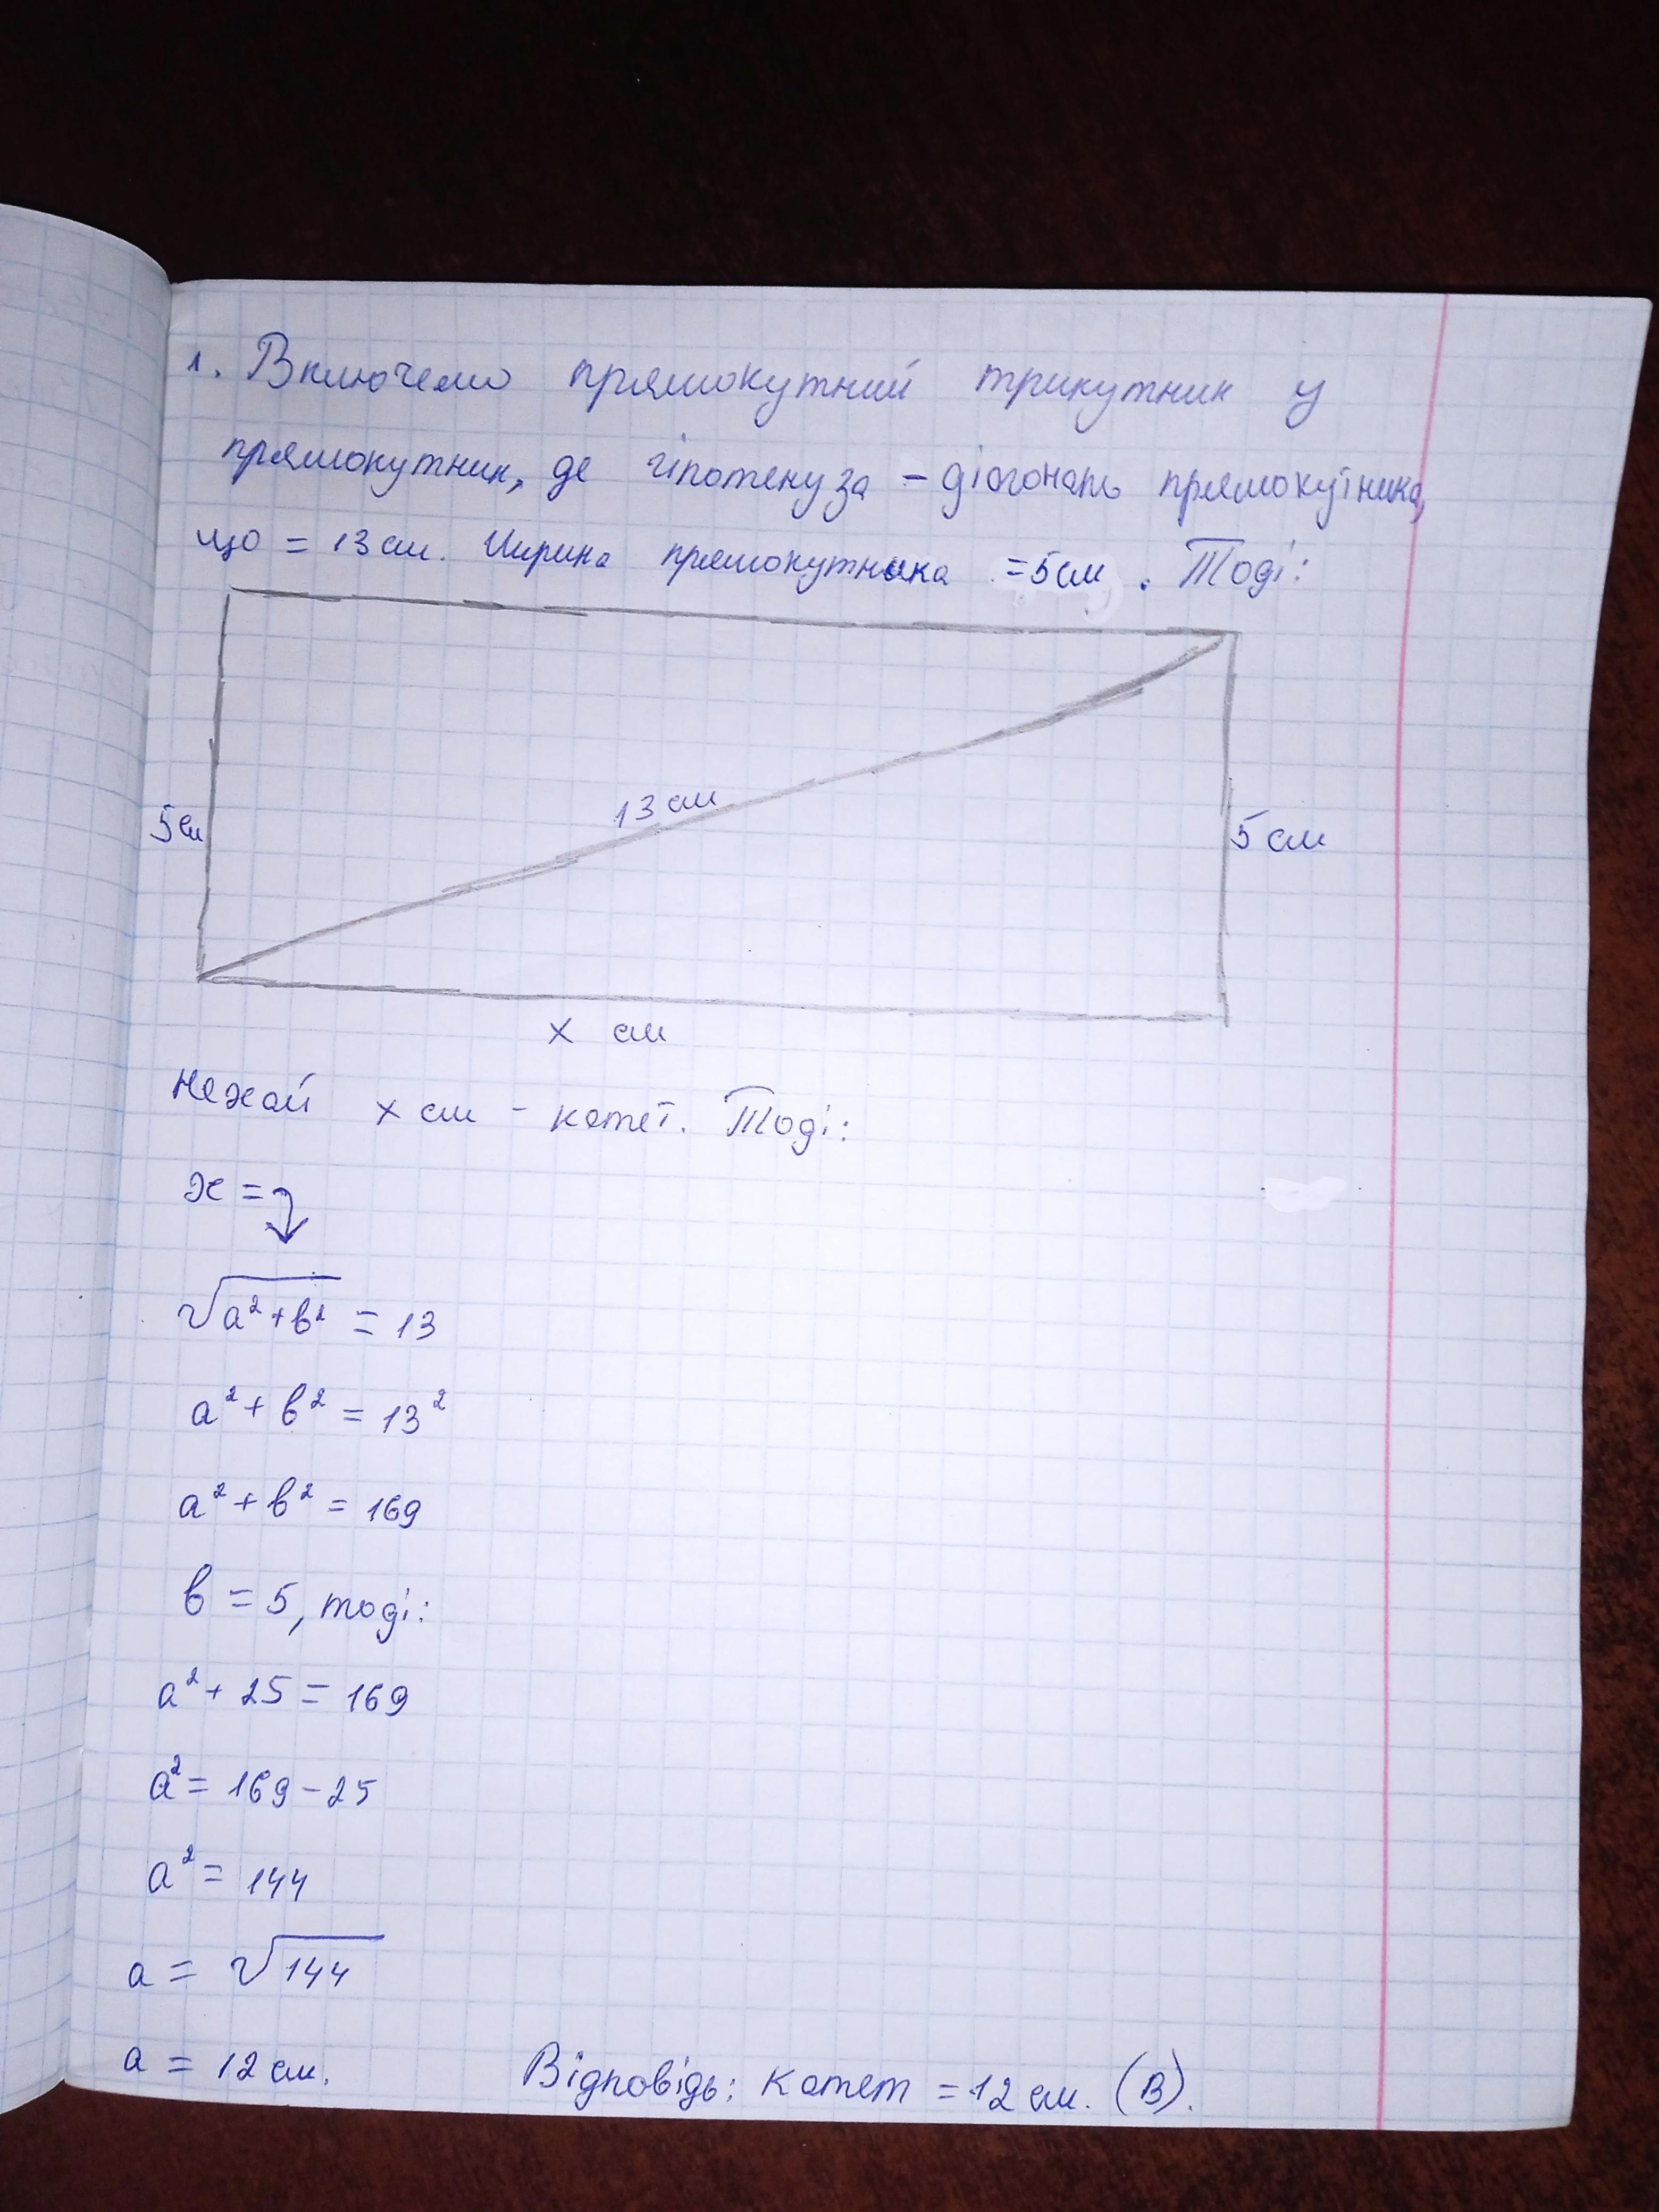 1. Включемо прямокутний трикутник у
прямокутник, де гіпотенуза – діагональ прямокутника,
що = 13 см. Ширина прямокутника = 5 см. Тоді:
13 см
5 см
5 см
x см
Нехай x см – катет. Тоді:
x =
√(a² + b²) = 13
a² + b² = 13²
a² + b² = 169
b = 5, тоді:
a² + 25 = 169
a² = 169 – 25
a² = 144
a = √144
a = 12 см.
Відповідь: катет = 12 см. (В).